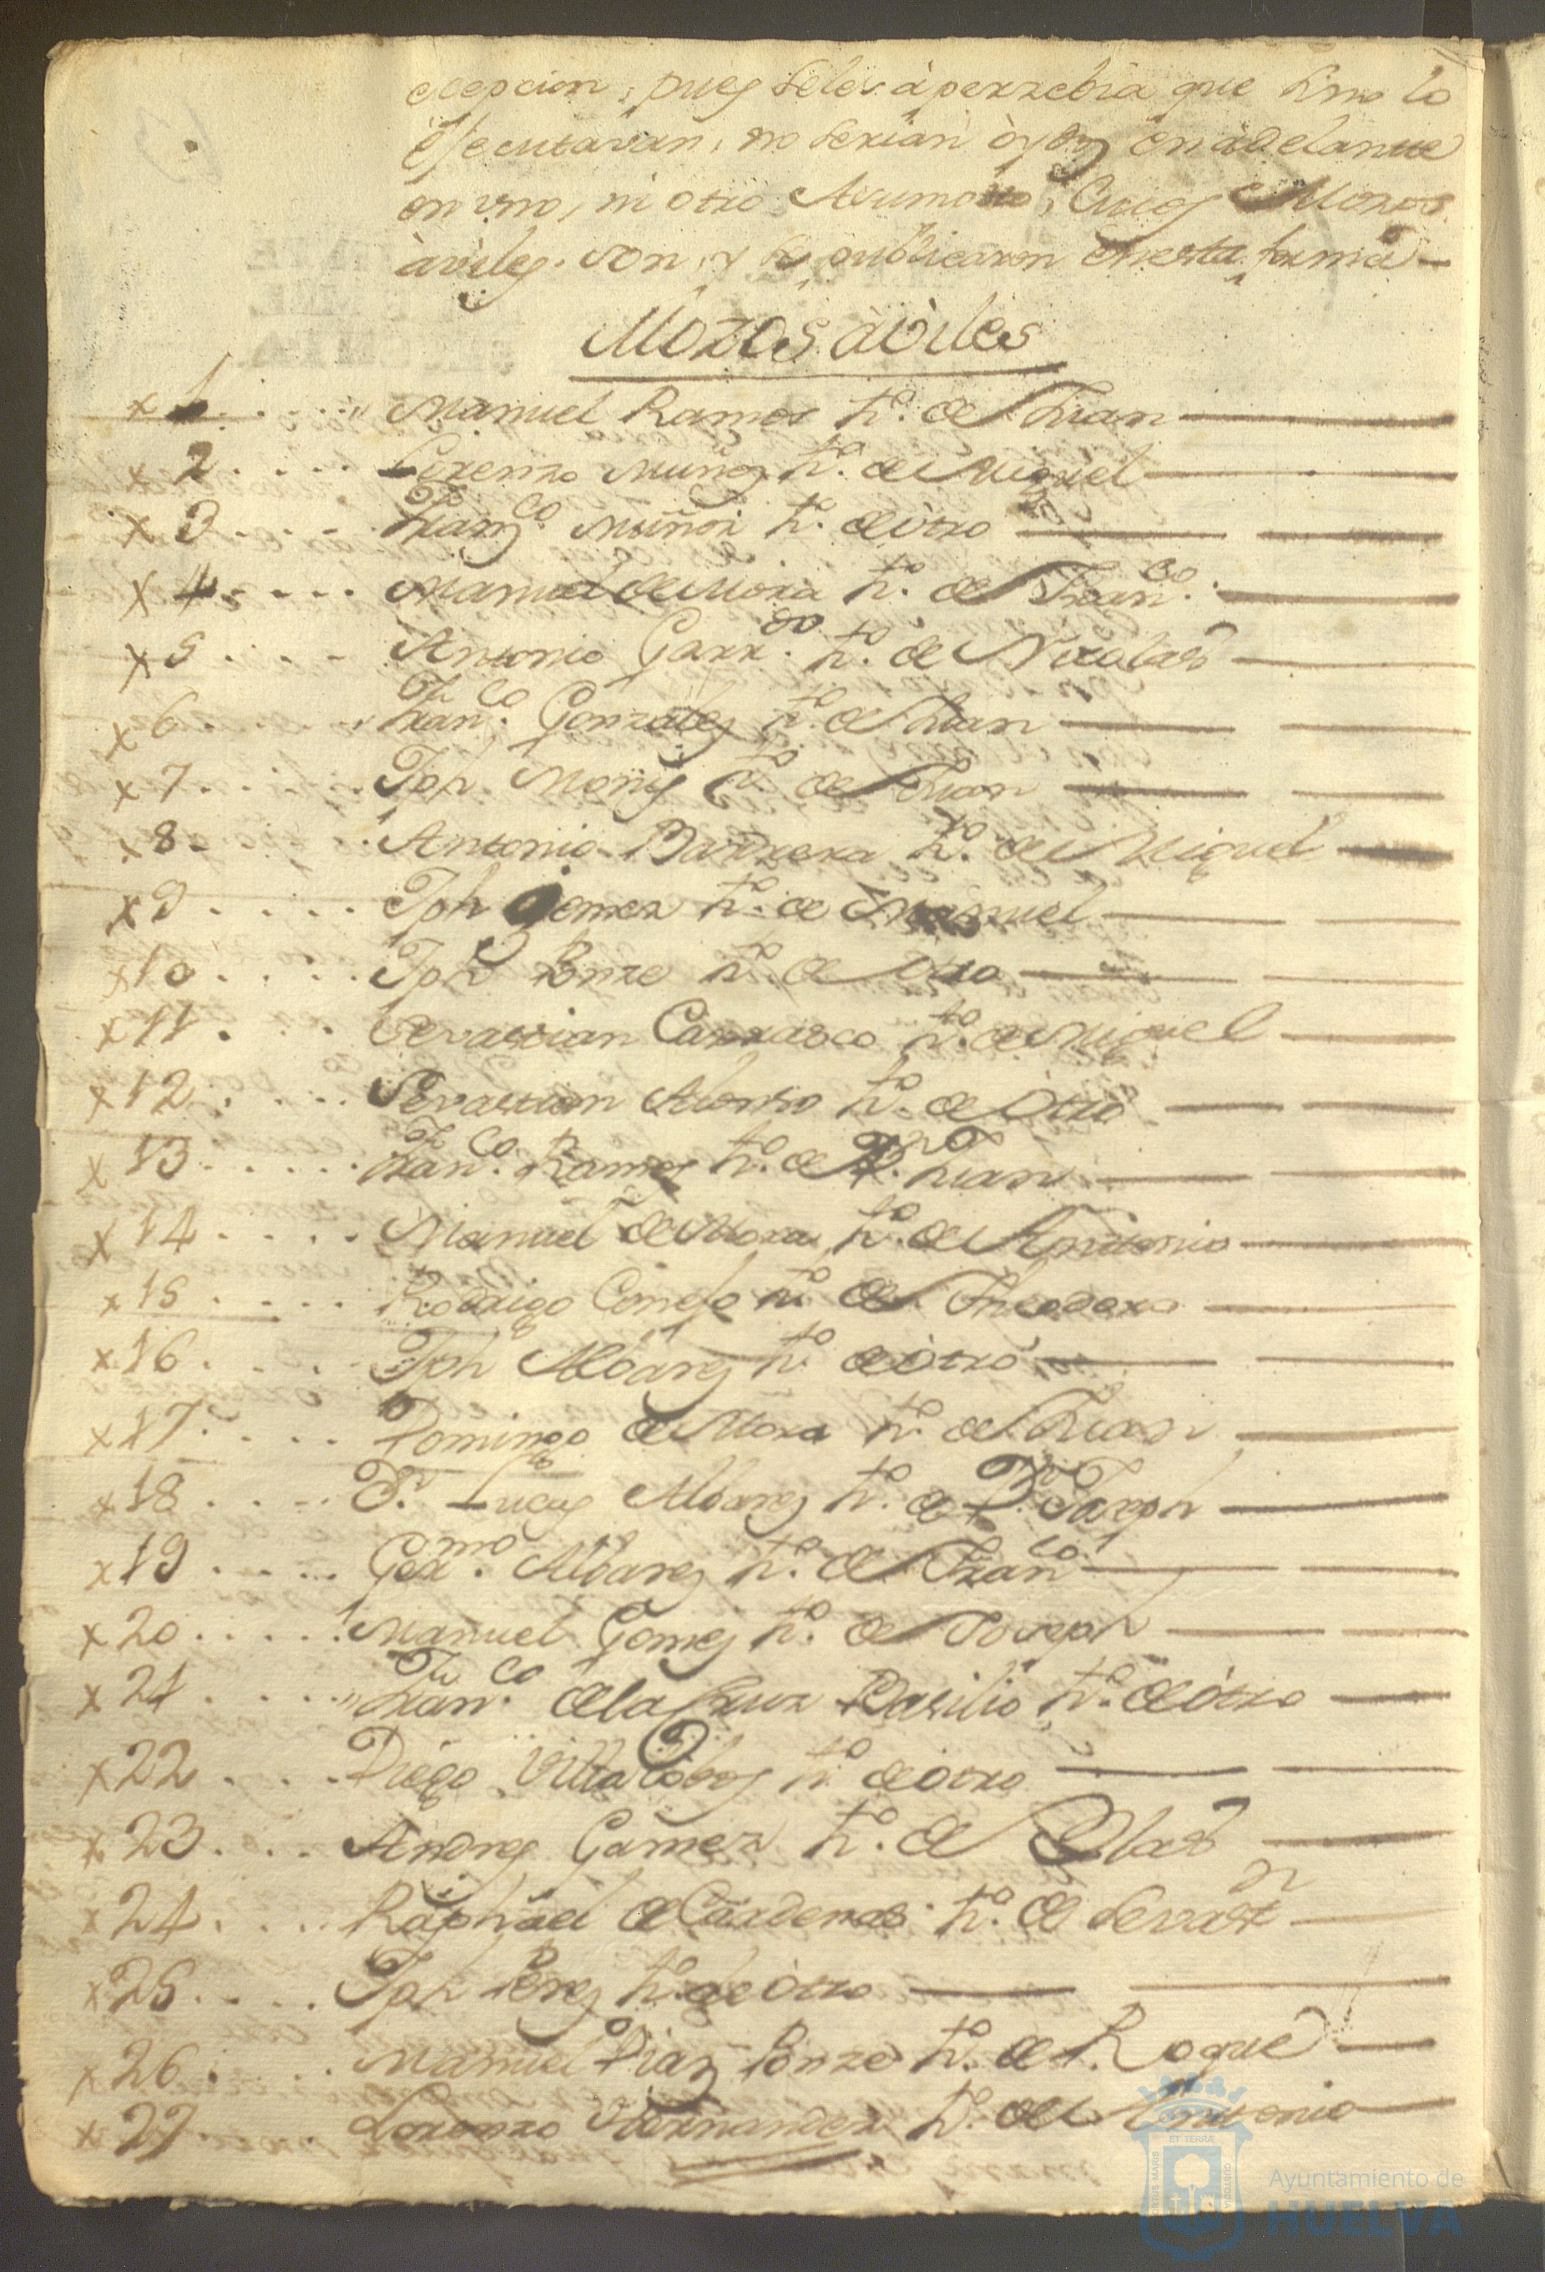 exepcion, pues se les aperzebia que sino lo
ejecutaran, no serian oydos en adelante
en uno, ni otro Asumpto; Cuyos Mozos
àviles son, y se publicaron en esta forma
Mozos àviles
x 1 Manuel Ramos h.º de Juan
x 2 Lorenzo Muñoz h.º de Miguel
x 3 Franz.co Muñoz h.º de otro
x 4 Manuel de Mora h.º de Fran.co
x 5 Antonio Garr.do h.º de Nicolas
x 6 Fran.co Gonzalez h.º de Juan
x 7 Jph Moniz h.º de Juan
x 8 Antonio Barrera h.º de Miguel
x 9 Jph Gomez h.º de Manuel
x 10 Jph Ponze h.º de otro
x 11 Sevastian Carrasco h.º de Miguel
x 12 Sevastian Alonso h.º de Otro
x 13 Fran.co Ramos h.º de Juan
x 14 Manuel de Mora h.º de Antonio
x 15 Rodrigo Conejo h.º de Theodora
x 16 Jph Albarez h.º de otro
x 17 Domingo de Mora h.º de Juan
x 18 D.n Lucas Albarez h.º de D.n Joseph
x 19 Ger.mo Albarez h.º de Fran.co
x 20 Manuel Gomez h.º de Joseph
x 21 Fran.co de la Cruz Basilio h.º de otro
x 22 Diego Villalobos h.º de otro
x 23 Andres Gamez h.º de Blas
x 24 Raphael de Cardenas h.º de Sevast.n
x 25 Jph Perez h.º de otro
x 26 Manuel Diaz Ponze h.º de Roque
x 27 Lorenzo Hernandez h.º de Antonio
ET TERRÆ
PORTUS MARIS
CUSTODIA
Ayuntamiento de
HUELVA